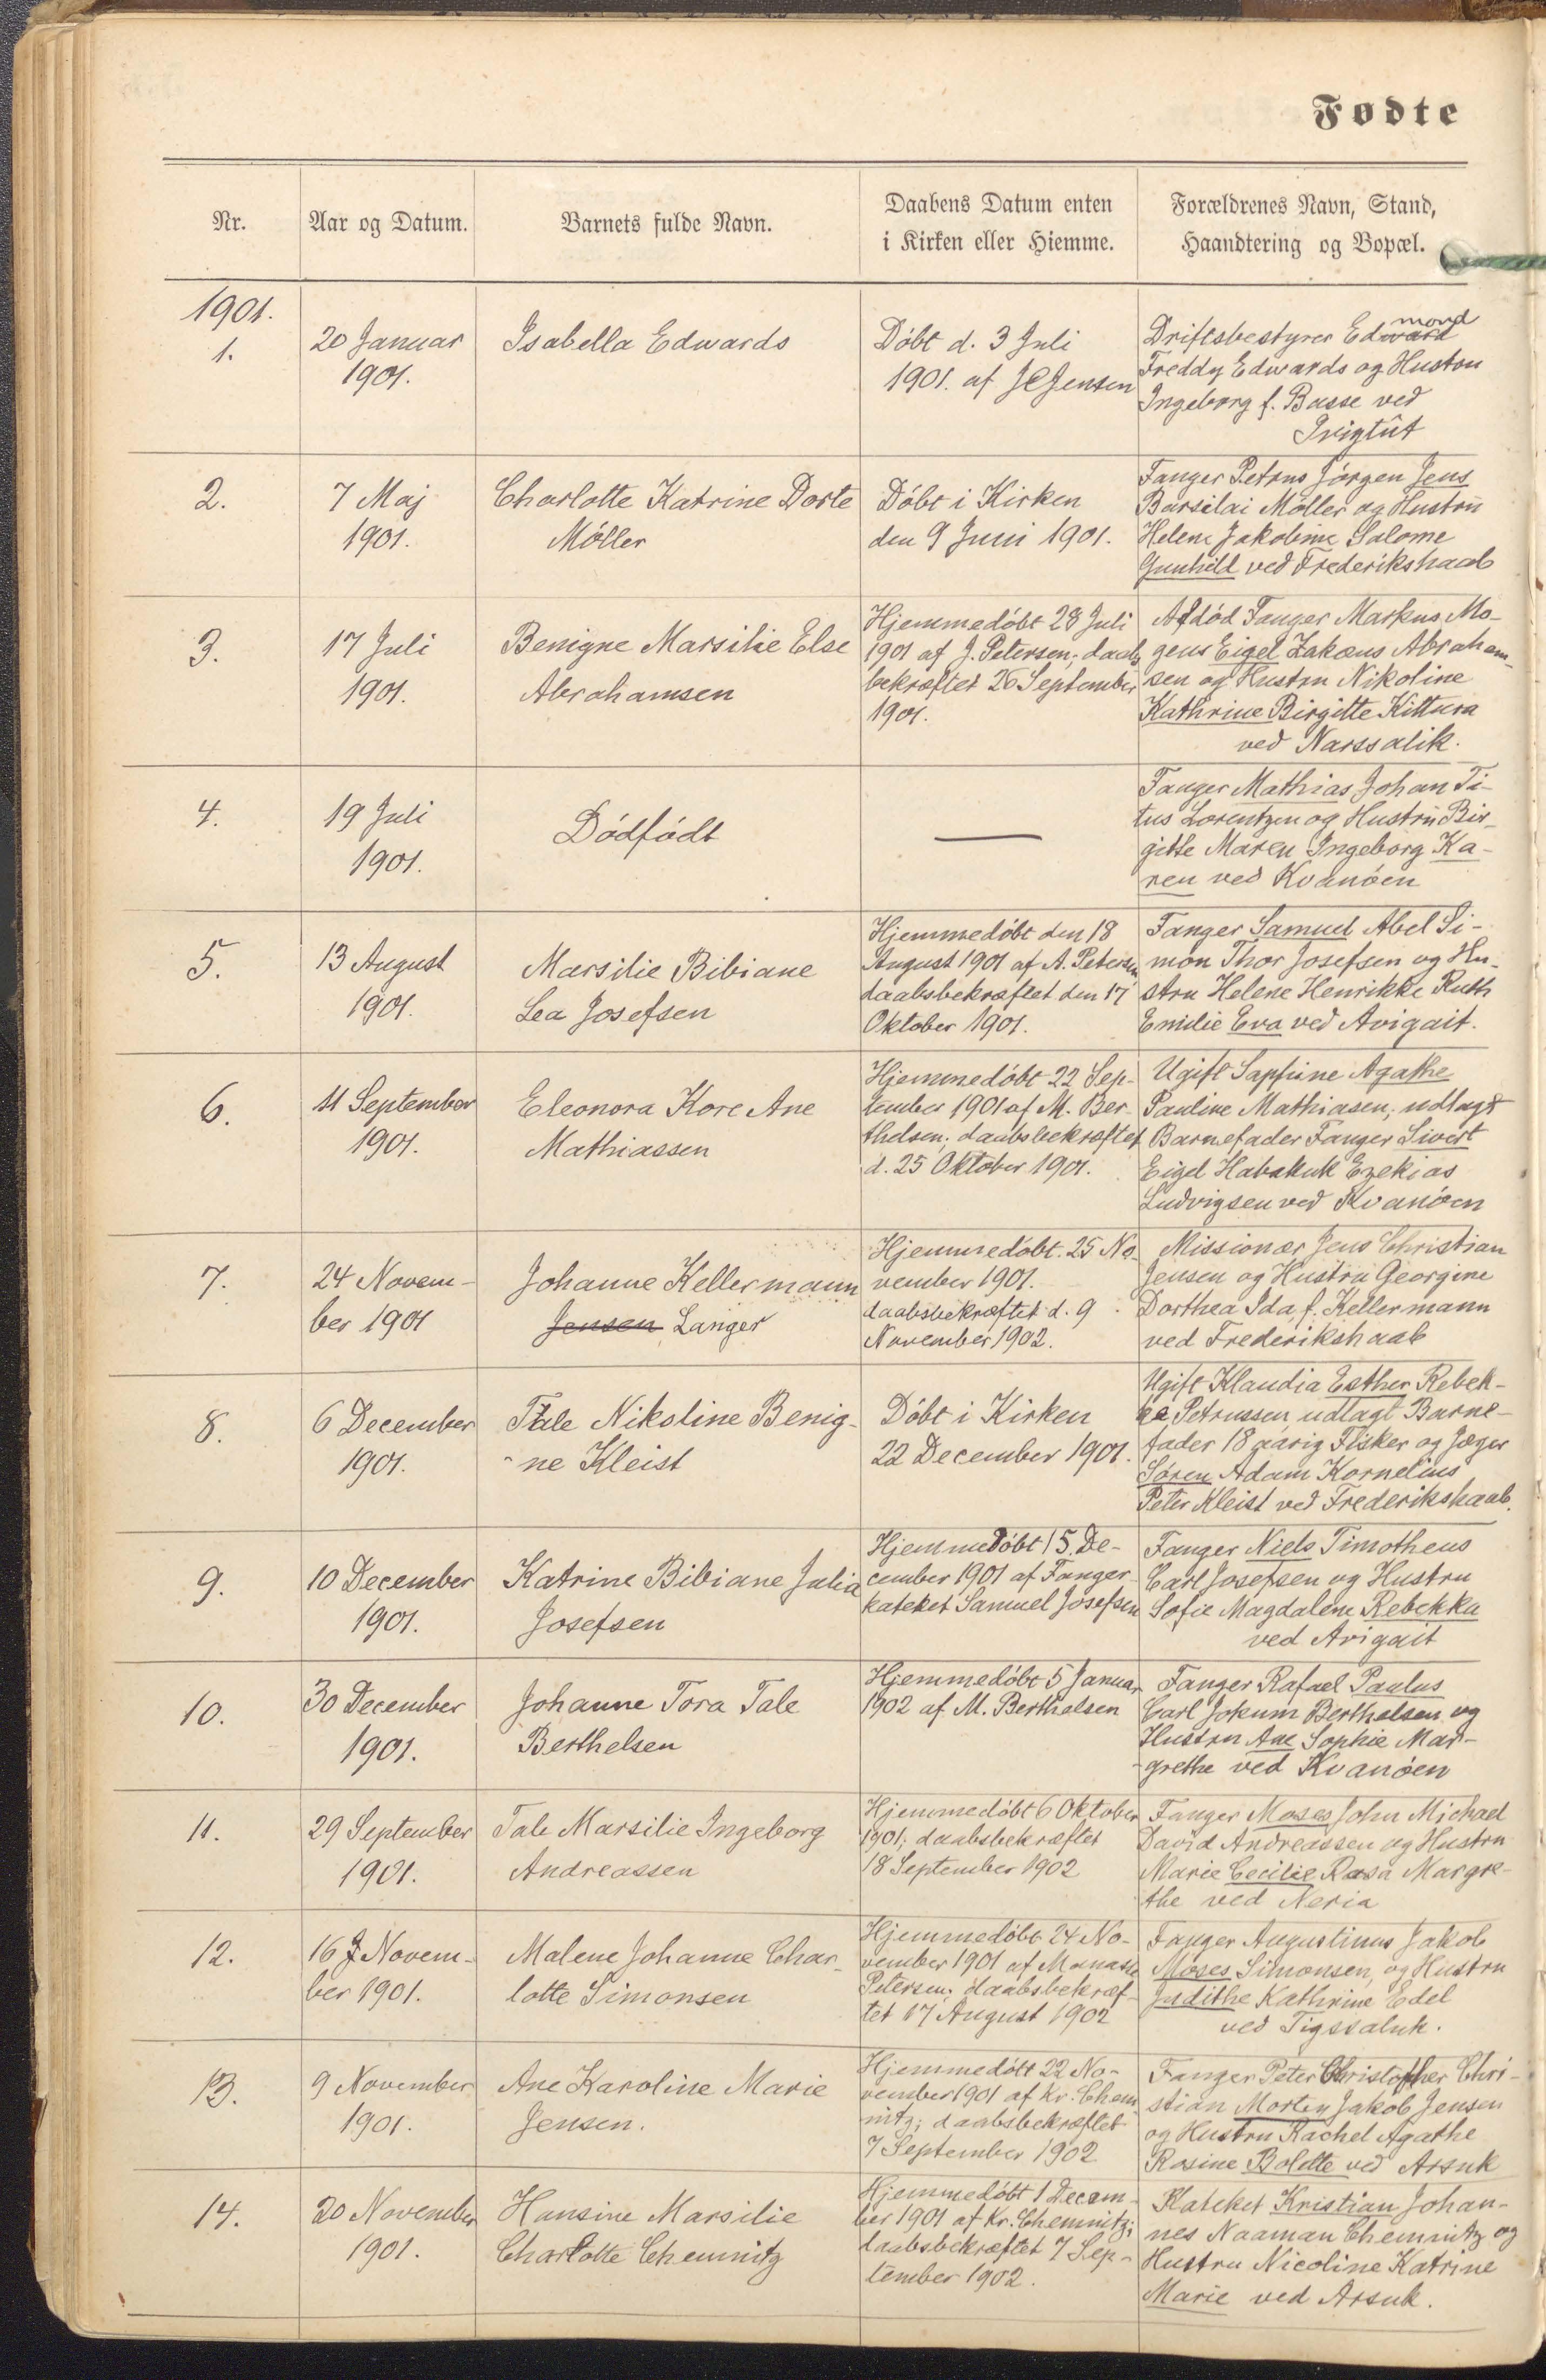 Fødte
Nr.
Aar og Datum.
Barnets fulde Navn.
Daabens Datum enten
i Kirken eller Hiemme.
Forældrenes Navn, Stand,
Haandtering og Bopæl.
1901.
1.
20 Januar
1901.
Isabella Edwards
Döbt d. 3 Juli
1901. af JCJensen
mond
Driftsbestyrer Edward
Freddy Edwards og Hustru
Ingeborg f. Basse ved
Ivigtût
2.
7 Maj
1901.
Charlotte Katrine Dorte
Möller
Döbt i Kirken
den 9 Juni 1901.
Fanger Petrus Jörgen Jens
Barsilai Möller og Hustru
Helene Jakobine Salome
Gunhild ved Frederikshaab
3.
17 Juli
1901.
Benigne Marsilie Else
Abrahamsen
Hjemmedöbt 28 Juli
1901 af J. Petersen; daabs
bekræftet 26 September
1901.
Afdöd Fanger Markus Mo-
gens Eigel Zakæus Abraham-
sen og Hustru Nikoline
Kathrine Birgitte Kittura
ved Narssalik.
4.
19 Juli
1901.
Dödfödt
—
Fanger Mathias Johan Ti-
tus Lorentzen og Hustru Bir-
gitte Maren Ingeborg Ka-
ren ved Kvanöen
5.
13 August
1901.
Marsilie Bibiane
Lea Josefsen
Hjemmedöbt den 18
August 1901 af A. Petersen
daabsbekræftet den 17
Oktober 1901.
Fanger Samuel Abel Si-
mon Thor Josefsen og Hu-
stru Helene Henrikke Ruth
Emilie Eva ved Avigait.
6.
11 September
1901.
Eleonora Kore Ane
Mathiassen
Hjemmedöbt 22 Sep-
tember 1901 af M. Ber-
thelsen; daabsbekræftet
d. 25 Oktober 1901.
Ugift Sapfiine Agathe
Pauline Mathiasen; udlagt
Barnefader Fanger Sivert
Eigel Habakuk Ezekias
Ludvigsen ved Kvanöen
7.
24 Novem-
ber 1901
Johanne Kellermann
Jensen Langer
Hjemmedöbt. 25 No-
vember 1901.
daabsbekræftet d. 9
November 1902.
Missionær Jens Christian
Jensen og Hustru Georgine
Dorthea Ida f. Kellermann
ved Frederikshaab
8.
6 December
1901.
Tale Nikoline Benig-
-ne Kleist
Döbt i Kirken
22 December 1901.
Ugift Klaudia Esther Rebek-
ka Petrussen udlagt Barne-
fader 18 aarig Fisker og Jæger
Sören Adam Kornelius
Peter Kleist ved Frederikshaab.
9.
10 December
1901.
Katrine Bibiane Julia
Josefsen
Hjemmedöbt 15. De-
cember 1901 af Fanger-
kateket Samuel Josefsen
Fanger Niels Timotheus
Carl Josefsen og Hustru
Sofie Magdalene Rebekka
ved Avigait
10.
30 December
1901.
Johanne Tora Tale
Berthelsen
Hjemmedöbt 5 Januar
1902 af M. Berthelsen
Fanger Rafael Paulus
Carl Jokum Berthelsen og
Hustru Ane Sophie Mar-
-grethe ved Kvanöen
11.
29 September
1901.
Tale Marsilie Ingeborg
Andreassen
Hjemmedöbt 6 Oktober
1901; daabsbekræftet
18 September 1902
Fanger Moses John Michael
David Andreassen og Hustru
Marie Cecilie Rosa Margre-
the ved Neria
12.
16 Novem-
ber 1901.
Malene Johanne Char-
lotte Simonsen
Hjemmedöbt 24 No-
vember 1901 af Manasse
Petersen; daabsbekræf-
tet 17 August 1902
Fanger Augustinus Jakob
Moses Simonsen, og Hustru
Judithe Kathrine Edel
ved Tigssaluk.
13.
9 November
1901.
Ane Karoline Marie
Jensen.
Hjemmedöbt 22 No-
vember 1901 af Kr. Chem
nitz; daabsbekræftet
7 September 1902
Fanger Peter Christopher Chri-
stian Morten Jakob Jensen
og Hustru Rachel Agathe
Rosine Bolette ved Arsuk
14.
20 November
1901.
Hansine Marsilie
Charlotte Chemnitz
Hjemmedöbt 1 Decem-
ber 1901 af Kr. Chemnitz;
daabsbekræftet 7 Sep-
tember 1902.
Kateket Kristian Johan-
nes Naaman Chemnitz og
Hustru Nicoline Katrine
Marie ved Arsuk.